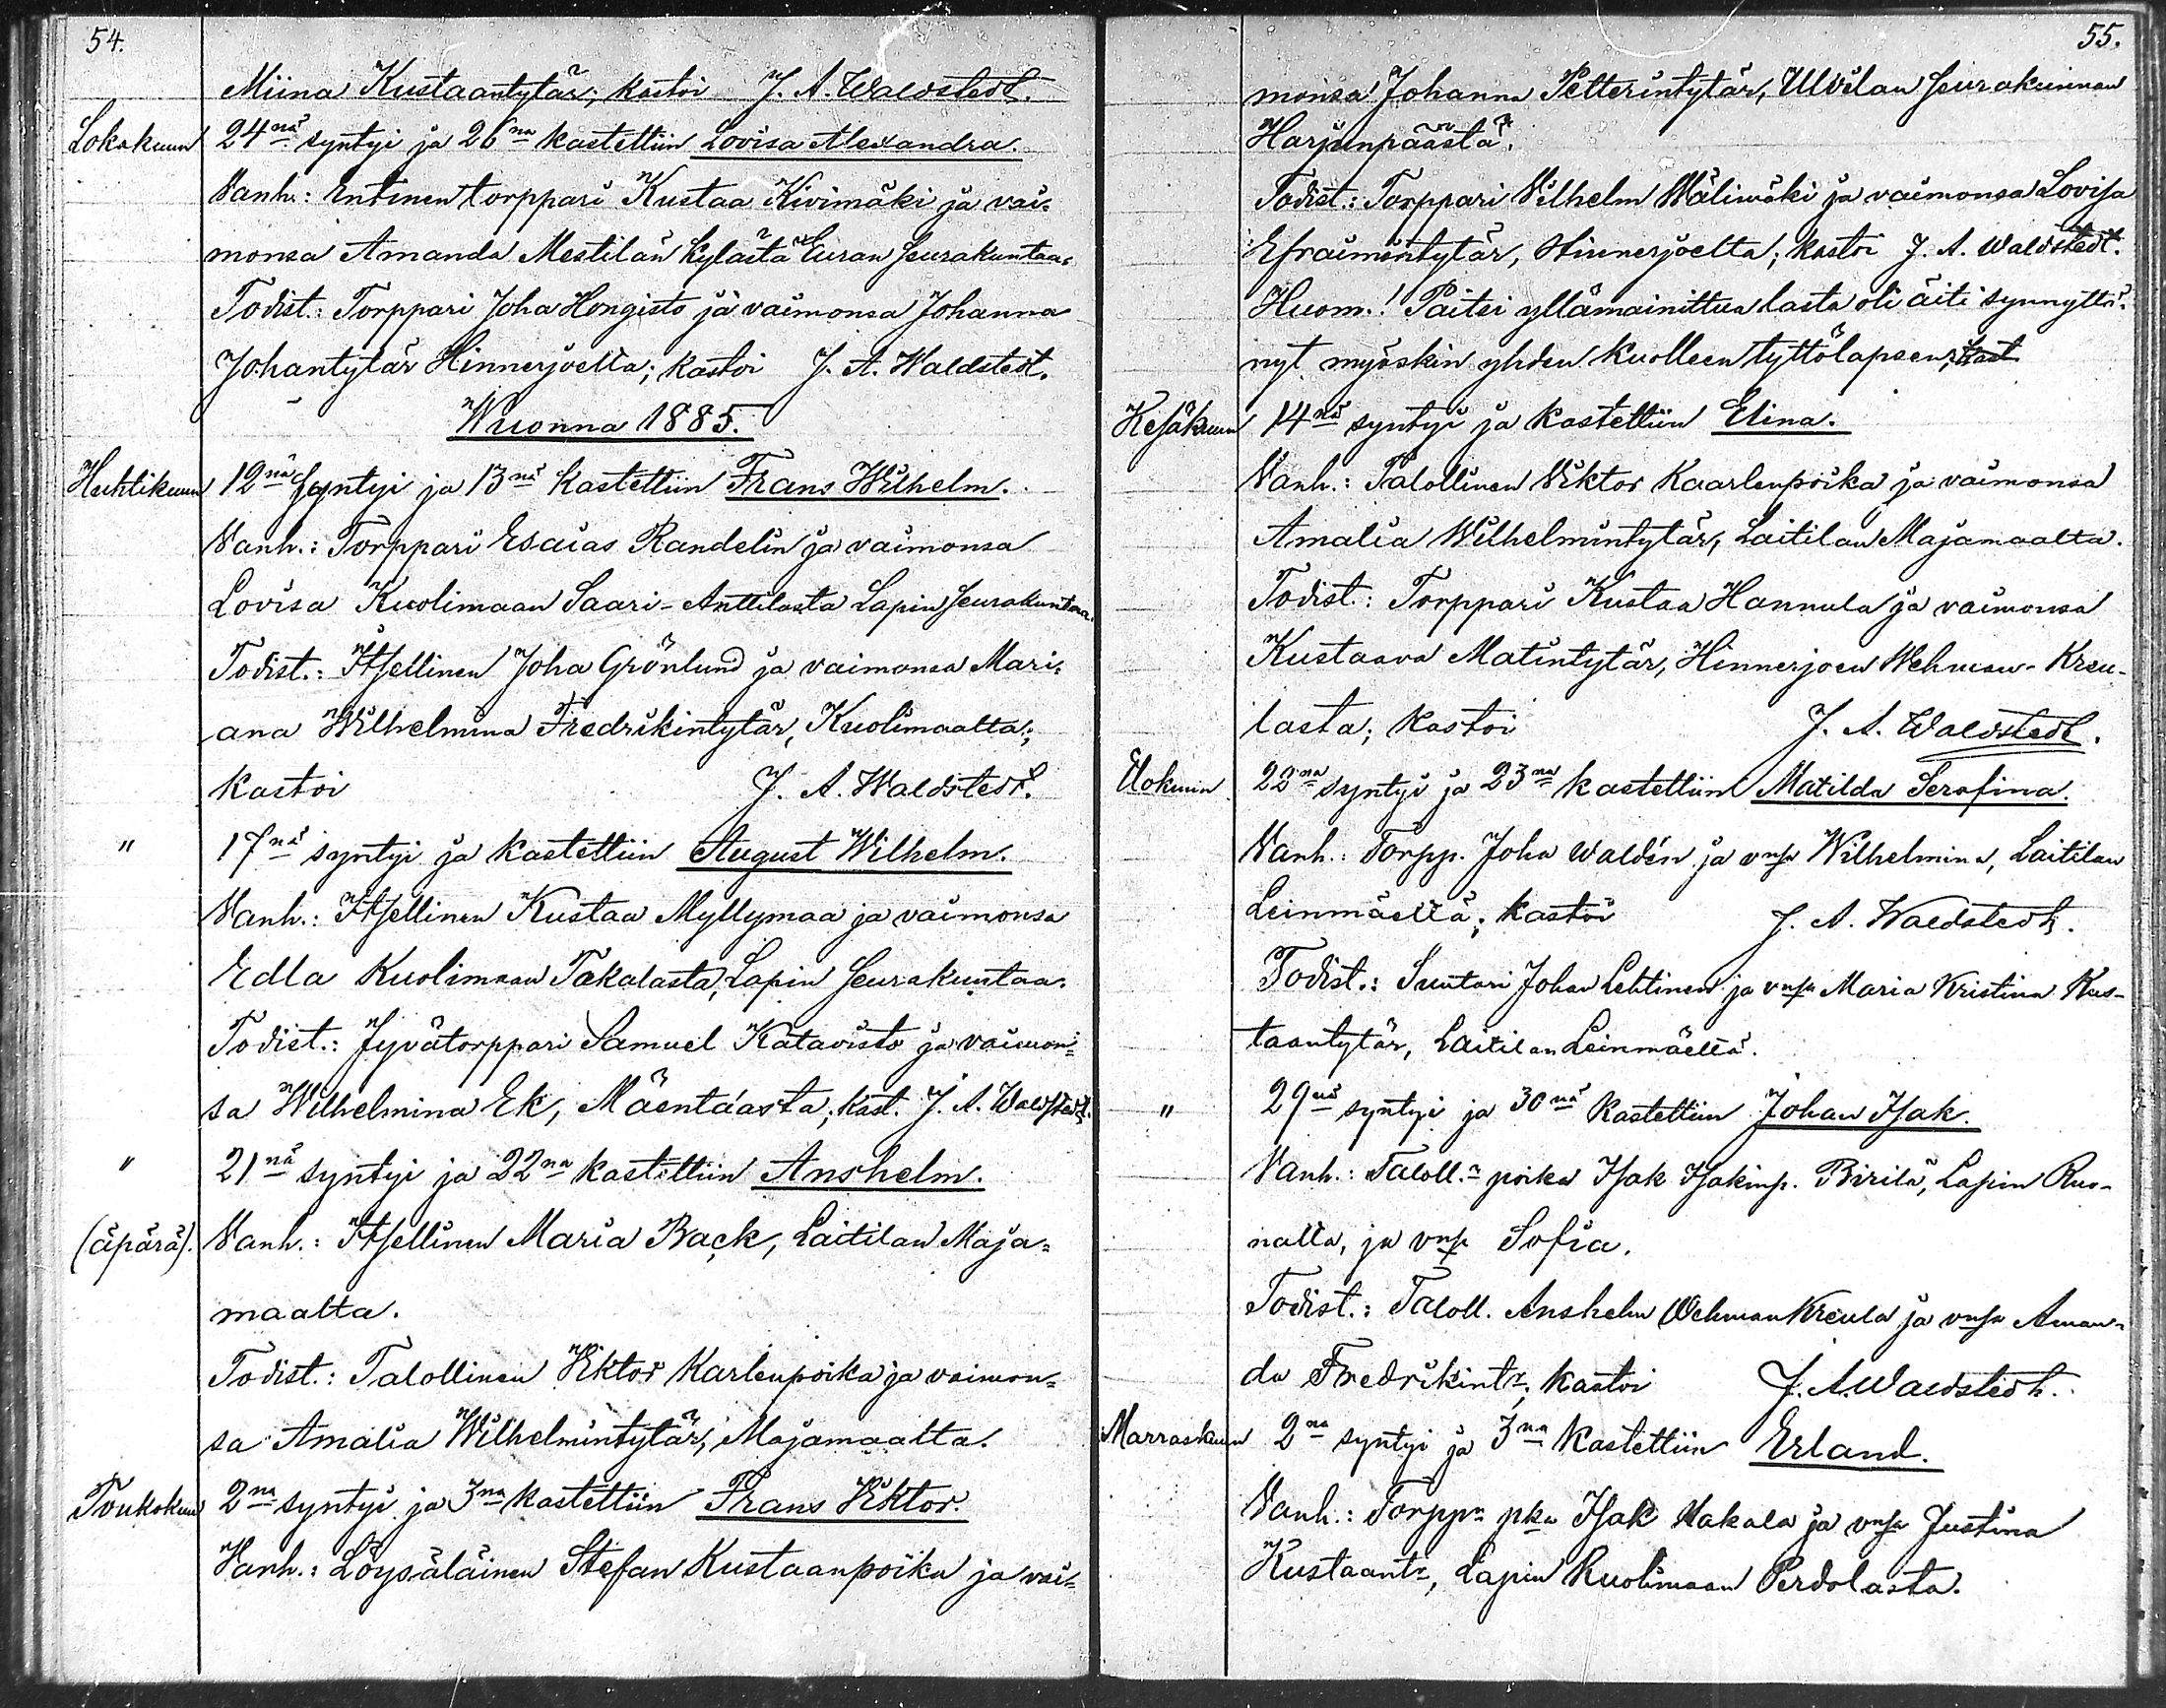 54.
Miina Kustaantytär; kastoi J. A. Waldstedt.
Lokakuun 24nä syntyi ja 26na kastettiin Lovisa Alexandra.
Vanh.: Entinen torppari Kustaa Kivimäki ja vai=
monsa Amanda Mestilän kylästä Euran seurakuntaa.
Todist.: Torppari Joha Hongisto ja vaimonsa Johanna
Johantytär Hinnerjoelta; kastoi J. A. Waldstedt.
Wuonna 1885.
Huhtikuun 12nä syntyi ja 13nä kastettiin Frans Wilhelm.
Vanh.: Torppari Esaias Randelin ja vaimonsa
Lovisa Kuolimaan Saari-Anttilasta Lapin seurakuntaa.
Todist.: Itsellinen Joha Grönlund ja vaimonsa Mari=
ana Wilhelmina Fredrikintytär, Kuolimaalta;
kastoi J. A. Waldstedt.
" 17nä syntyi ja kastettiin August Wilhelm.
Vanh.: Itsellinen Kustaa Myllymaa ja vaimonsa
Edla Kuolimaan Takalasta, Lapin seurakuntaa.
Todist.: Jyvätorppari Samuel Katavisto ja vaimon=
sa Wilhelmina Ek, Mäentaasta; kast. J. A. Waldstedt.
" 21nä syntyi ja 22na kastettiin Anshelm.
(äpärä). Vanh.: Itsellinen Maria Back, Laitilan Maja=
maalta.
Todist.: Talollinen Viktor Karlenpoika ja vaimon=
sa Amalia Wilhelmintytär, Majamaalta.
Toukokuun 2na syntyi ja 3na kastettiin Frans Viktor.
Vanh.: Löysäläinen Stefan Kustaanpoika ja vai=
55.
monsa Johanna Petterintytär, Ulvilan seurakunnan
Harjunpäästä.
Todist.: Torppari Vilhelm Wälimäki ja vaimonsa Lovisa
Efraimintytär, Hinnerjoelta; kastoi J. A. Waldstedt.
Huom.! Paitsi yllämainittua lasta oli äiti synnyttä=
nyt myöskin yhden kuolleen tyttölapsen; kast
Kesäkuun 14nä syntyi ja kastettiin Elina.
Vanh.: Talollinen Viktor Kaarlenpoika ja vaimonsa
Amalia Wilhelmintytär, Laitilan Majamaalta.
Todist.: Torppari Kustaa Hannula ja vaimonsa
Kustaava Matintytär, Hinnerjoen Wehman-Kreu-
lasta; kastoi J. A. Waldstedt.
Elokuun 22na syntyi ja 23na kastettiin Matilda Serafina.
Vanh.: Torpp. Joha Waldén ja vnsa Wilhelmina, Laitilan
Leinmäeltä; kastoi J. A. Waldstedt.
Todist.: Suutari Johan Lehtinen ja vnsa Maria Kristina Kus-
taantytär, Laitilan Leinmäeltä.
" 29nä syntyi ja 30nä kastettiin Johan Isak.
Vanh.: Taloll.n poika Isak Isakinp. Pirilä, Lapin Ruo-
nalta, ja vnsa Sofia.
Todist.: Taloll. Anshelm Wehman Kreula ja vnsa Aman-
da Fredrikintr; kastoi J. A. Waldstedt.
Marraskuun 2na syntyi ja 3na kastettiin Erland.
Vanh.: Torppn pka Isak Makala ja vnsa Justina
Kustaantr, Lapin Kuolimaan Perdolasta.